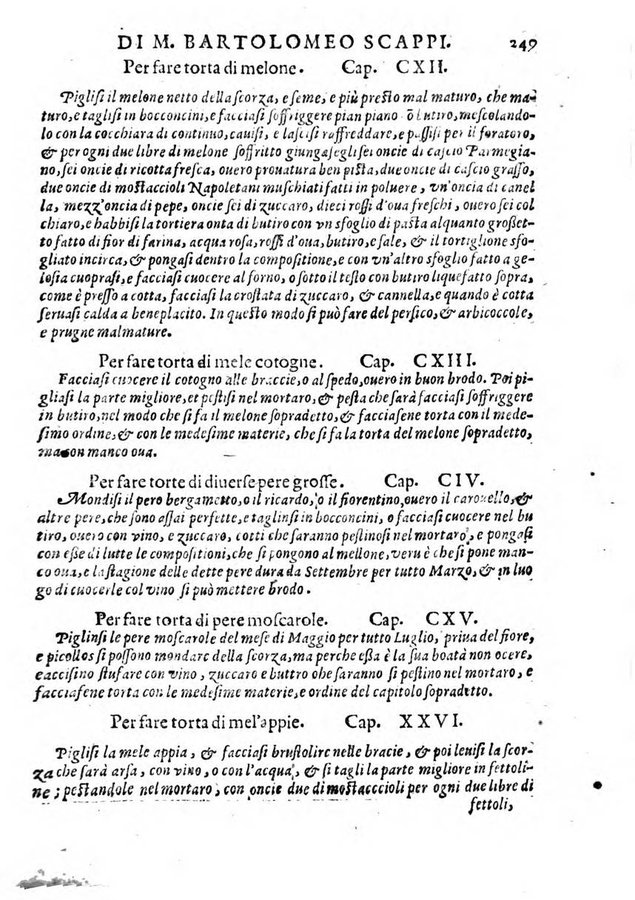 DI M. BARTOLOMEO SCAPPI. 249
Per fare torta di melone. Cap. CXII.
Piglisi il melone netto della scorza, e seme, e più presto mal maturo, che ma-
turo, e taglisi in bocconcini, e facciasi soffriggere pian piano ò butiro, mescolando-
lo con la cocchiara di continuo, cauisi, e lascisi raffreddare, e passisi per il foratoro,
& per ogni due libre di melone soffritto giungaseglisi sei oncie di cascio Parmegia-
no, sei oncie di ricotta fresca, ouero prouatura ben pista, due oncie di cascio grasso,
due oncie di mostaccioli Napoletani muschiati fatti in poluere, un'oncia di canel
la, mezz'oncia di pepe, oncie sei di zuccaro, dieci rossi d'oua freschi, ouero sei col
chiaro, e habbisi la tortiera onta di butiro con un sfoglio di pasta alquanto grosset-
to fatto di fior di farina, acqua rosa, rossi d'oua, butiro, e sale, & il tortiglione sfo-
gliato incirca, & pongasi dentro la compositione, e con un'altro sfoglio fatto a ge-
losia cuoprasi, e facciasi cuocere al forno, o sotto il testo con butiro liquefatto sopra,
come è presso a cotta, facciasi la crostata di zuccaro, & cannella, e quando è cotta
seruasi calda a beneplacito. In questo modo si può fare del persico, & arbicoccole,
e prugne malmature.
Per fare torta di mele cotogne. Cap. CXIII.
Facciasi cuocere il cotogno alle braccie, o al spedo, ouero in buon brodo. Poi pi-
gliasi la parte migliore, et pestisi nel mortaro, & pesta che sarà facciasi soffriggere
in butiro, nel modo che si fa il melone sopradetto, & facciasene torta con il mede-
simo ordine, & con le medesime materie, che si fa la torta del melone sopradetto,
ma con manco oua.
Per fare torte di diuerse pere grosse. Cap. CIV.
Mondisi il pero bergametto, o il ricardo, o il fiorentino, ouero il carouello, &
altre pere, che sono assai perfette, e taglinsi in bocconcini, o facciasi cuocere nel bu
tiro, ouero con vino, e zuccaro, cotti che saranno pestinosi nel mortaro, e pongasi
con esse di tutte le compositioni, che si pongono al mellone, veru è che si pone man-
co oua, e la stagione delle dette pere dura da Settembre per tutto Marzo, & in luo
go di cuocerle col vino si può mettere brodo.
Per fare torta di pere moscarole. Cap. CXV.
Piglinsi le pere moscarole del mese di Maggio per tutto Luglio, priua del fiore,
e picollos si possono mondarc della scorza, ma perche essa è la sua boatà non ocere,
e accisino stufare con vino, zuccaro e buttro ohe saranno si pestino nel mortaro, e
facciasene torta con le medesime materie, e ordine del capitolo sopradetto.
Per fare torta di mel'appie. Cap. XXVI.
Piglisi la mele appia, & facciasi brustolirc nelle bracie, & poi leuisi la scor-
za che sarà arsa, con vino, o con l'acqua, & si tagli la parte migliore in fettoli-
ne; pestandole nel mortaro, con oncie due di mostacccioli per ogni due libre di
fettoli,